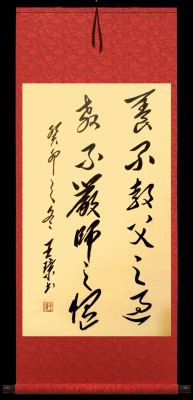 養不教父之過
教不嚴師之惰
癸卯之冬王书